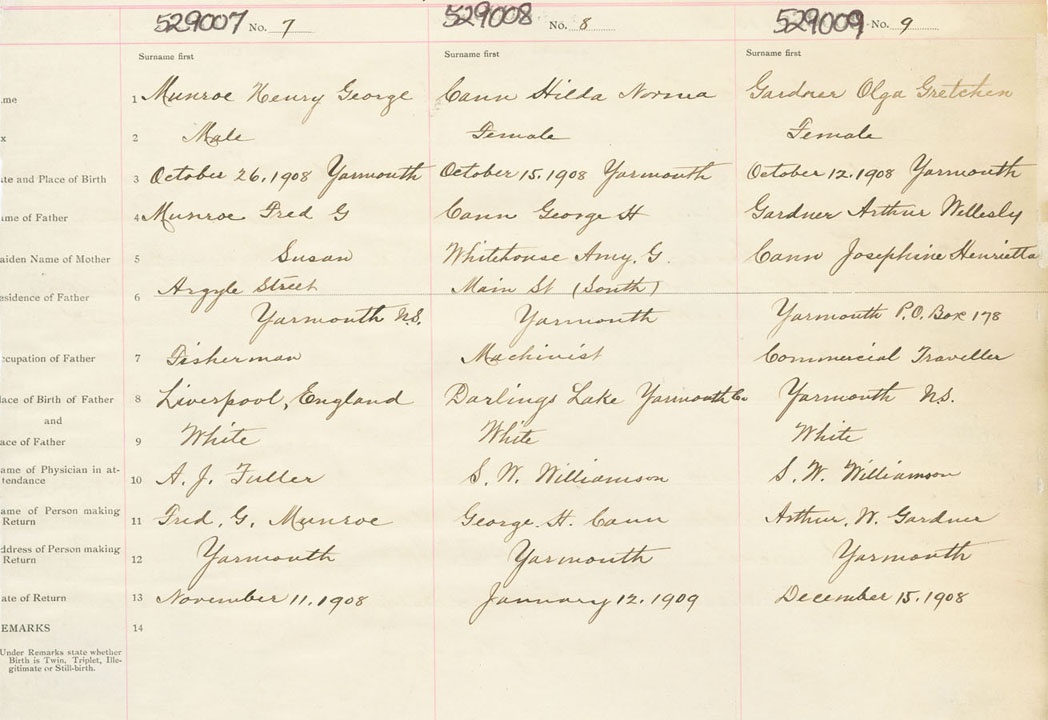 529007 No. 7 529008 No. 8 529009 No. 9
Surname first Surname first Surname first
me 1 Munroe Henry George Cann Hilda Norma Gardner Olga Gretchen
x 2 Male Female Female
te and Place of Birth 3 October 26. 1908 Yarmouth October 15. 1908 Yarmouth October 12. 1908 Yarmouth
me of Father 4 Munroe Fred G Cann George H Gardner Arthur Wellesly
aiden Name of Mother 5 Susan Whitehouse Amy. G. Cann Josephine Henrietta
esidence of Father 6 Argyle Street Main St (South)
Yarmouth N.S. Yarmouth Yarmouth P.O. Box 178
ccupation of Father 7 Fisherman Machinist Commercial Traveller
lace of Birth of Father 8 Liverpool, England Darlings Lake Yarmouth Co Yarmouth N.S.
and
ace of Father 9 White White White
ame of Physician in at-
tendance 10 A. J. Fuller S. W. Williamson S. W. Williamson
ame of Person making
Return 11 Fred. G. Munroe George. H. Cann Arthur. W. Gardner
ddress of Person making
Return 12 Yarmouth Yarmouth Yarmouth
ate of Return 13 November 11. 1908 January 12. 1909 December 15. 1908
EMARKS 14
Under Remarks state whether
Birth is Twin, Triplet, Ille-
gitimate or Still-birth.